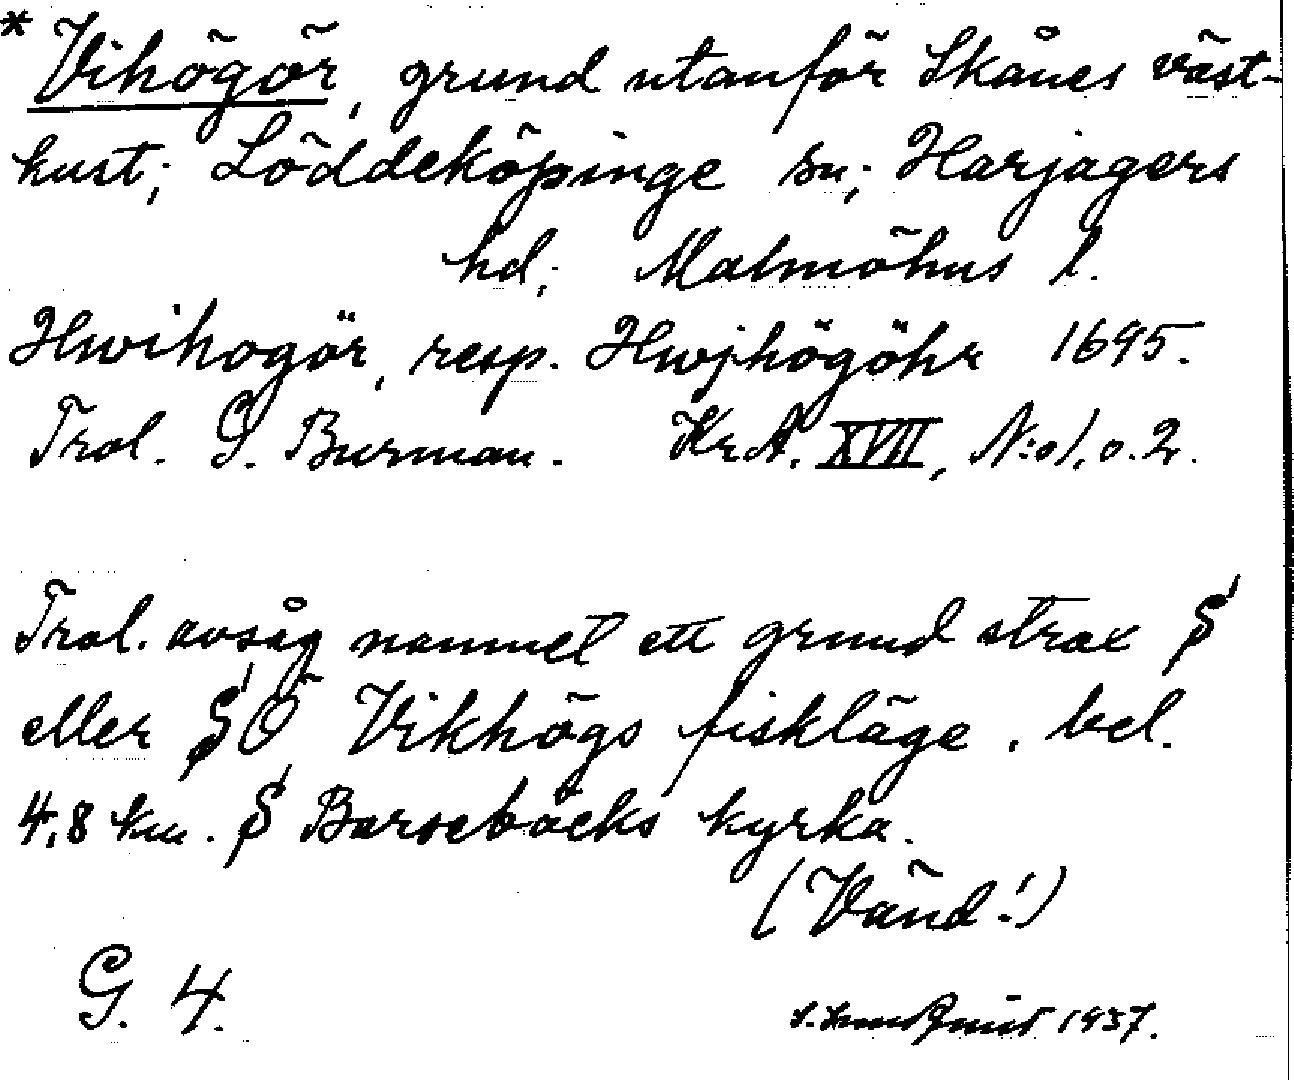 * Vihögör, grund utanför Skånes väst-
kust; Löddeköpinge sn; Harjagers
hd; Malmöhus l.
Hwihogör, resp. Hwjhögöhr 1695.
Trol. G. Burman. Kr.A. XVII, N:o 1, o. 2.
Trol. avsåg namnet ett grund strax S
eller SÖ Vikhögs fiskläge, bel.
4,8 km. S Barsebäcks kyrka.
(Vänd!)
G. 4.
1937.